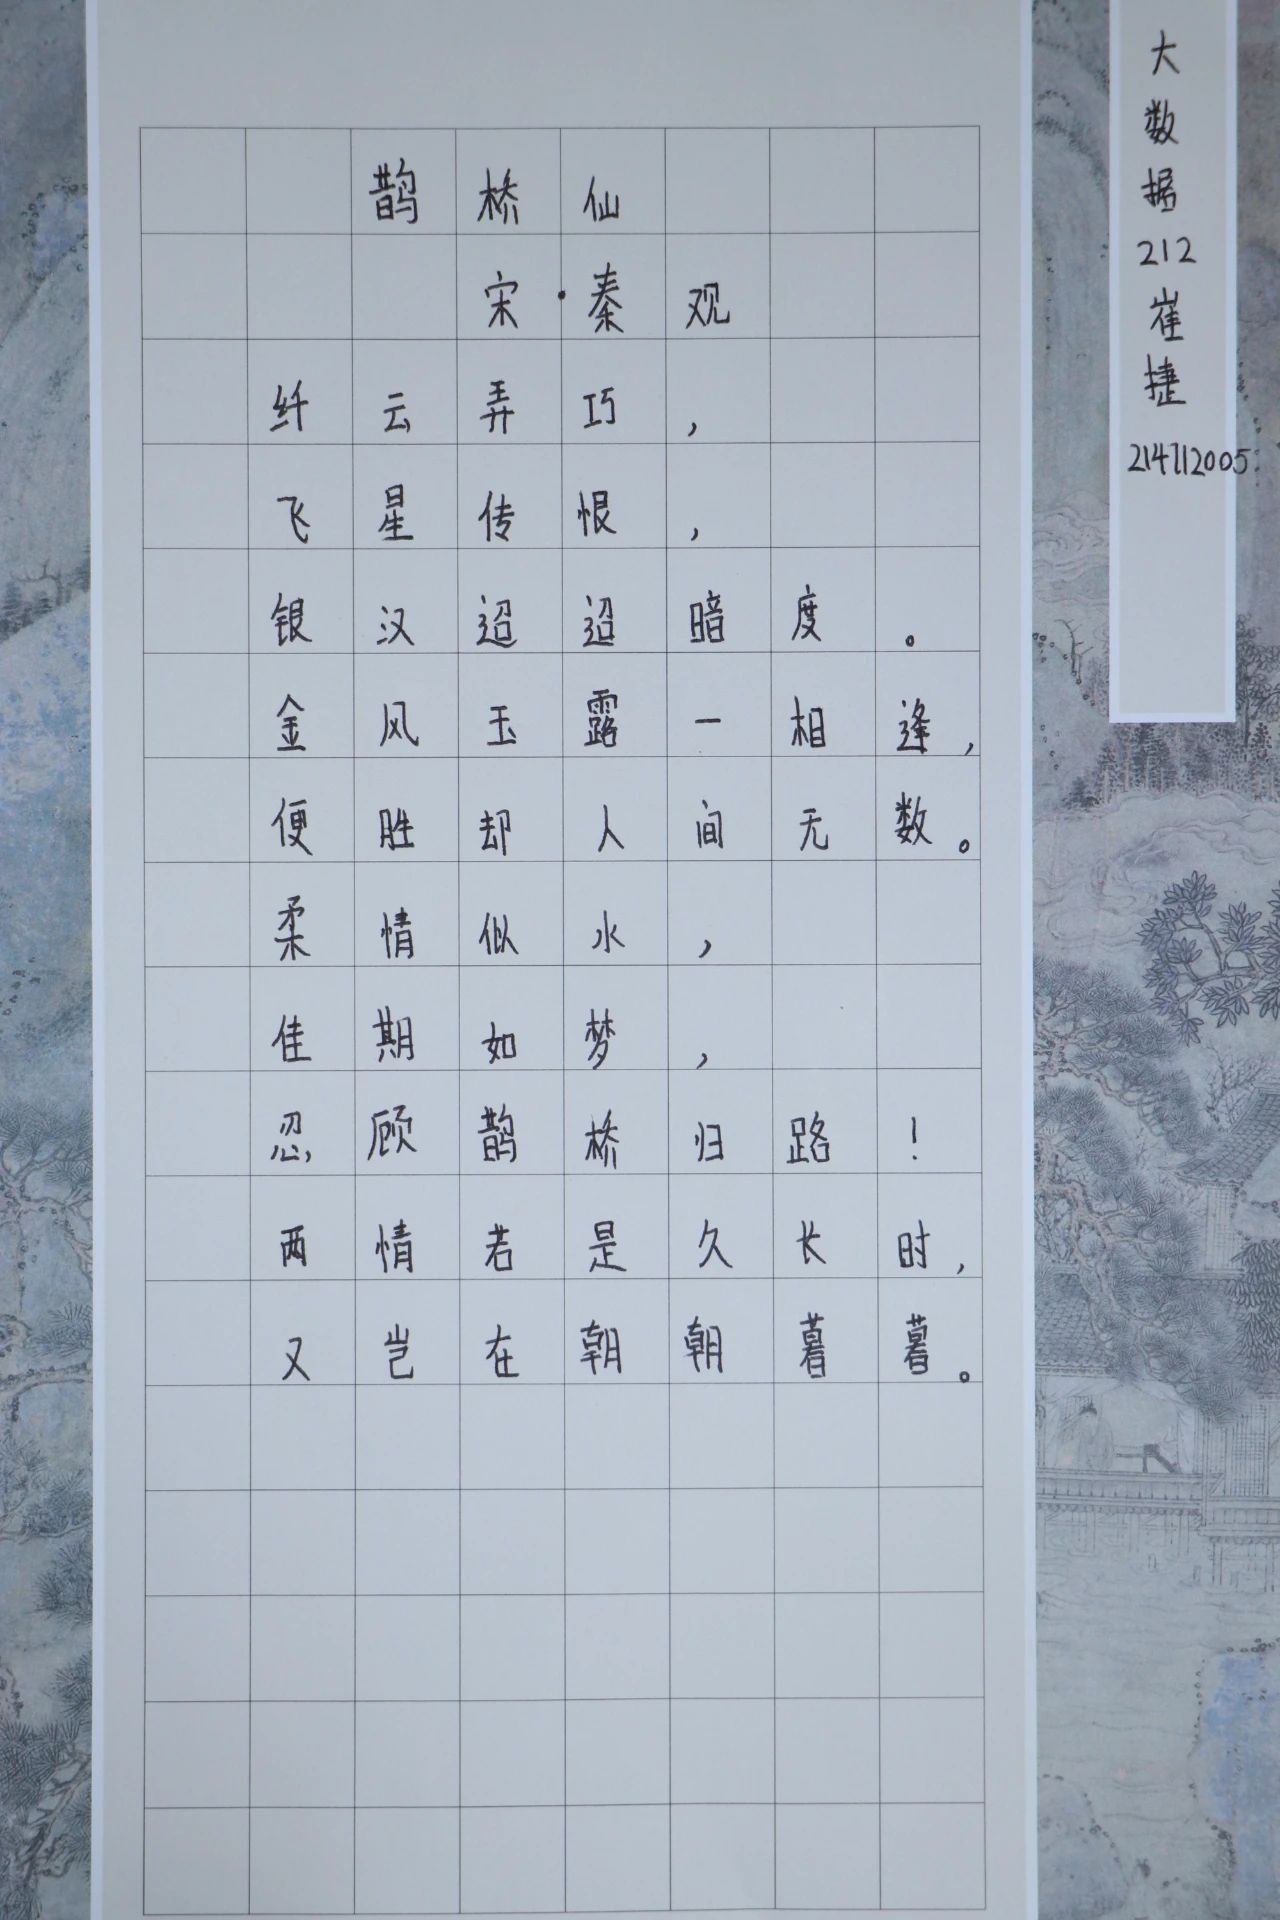 鹊桥仙
宋·秦观
纤云弄巧，
飞星传恨，
银汉迢迢暗度。
金风玉露一相逢，
便胜却人间无数。
柔情似水，
佳期如梦，
忍顾鹊桥归路！
两情若是久长时，
又岂在朝朝暮暮。
大数据212崔捷
214712005